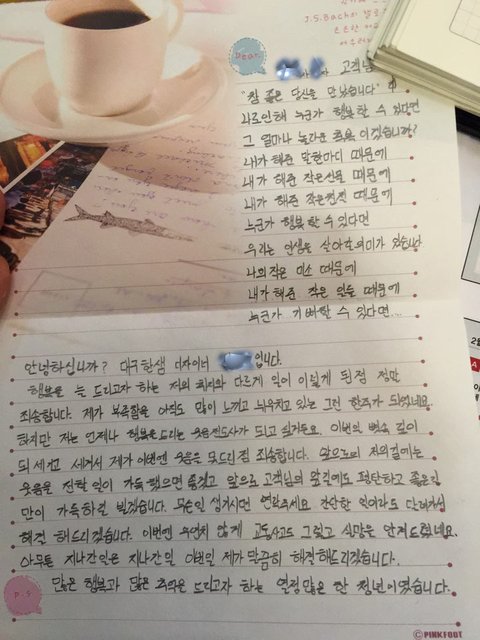 J.S.Bach의
Dear.
고객님
"참 좋은 당신을 만났습니다" 中
나로인해 누군가 행복할 수 있다면
그 얼마나 놀라운 축복 이겠습니까?
내가 해준 말한마디 때문에
내가 해준 작은선물 때문에
내가 해준 작은친절 때문에
누군가 행복할 수 있다면
우리는 인생을 살아갈의미가 있습니다
나의 작은 미소 때문에
내가 해준 작은 일들 때문에
누군가 기뻐할 수 있다면...
안녕하십니까? 대구한샘 디자이너 입니다.
행복을 늘 드리고자 하는 저의 취지와 다르게 일이 이렇게 된점 정말
죄송합니다. 제가 부족함을 아직도 많이 느끼고 뉘우치고 있는 그런 한주가 되었네요.
하지만 저는 언제나 행복을드리는 웃음전도사가 되고 싶거든요. 이번일 뼛속 깊이
되세기고 세겨서 제가 이번엔 웃음을 못드린점 죄송합니다. 앞으로의 저의길에는
웃음을 전할 일이 가득 했으면 좋겠고 앞으로 고객님의 앞길에도 평탄하고 좋은길
만이 가득하길 빌겠습니다. 무슨일 생기시면 연락주세요 간단한 일이라도 달려가서
해결 해드리겠습니다. 이번엔 우연치 않게 고동사고도 그렇고 실망을 안겨드렸네요.
아무튼 지나간일은 지나간일 이번일 제가 말끔히 해결해드리겠습니다.
P.S
많은 행복과 많은 추억을 드리고자 하는 열정많은 한 청년이었습니다.
©PINKFOOT